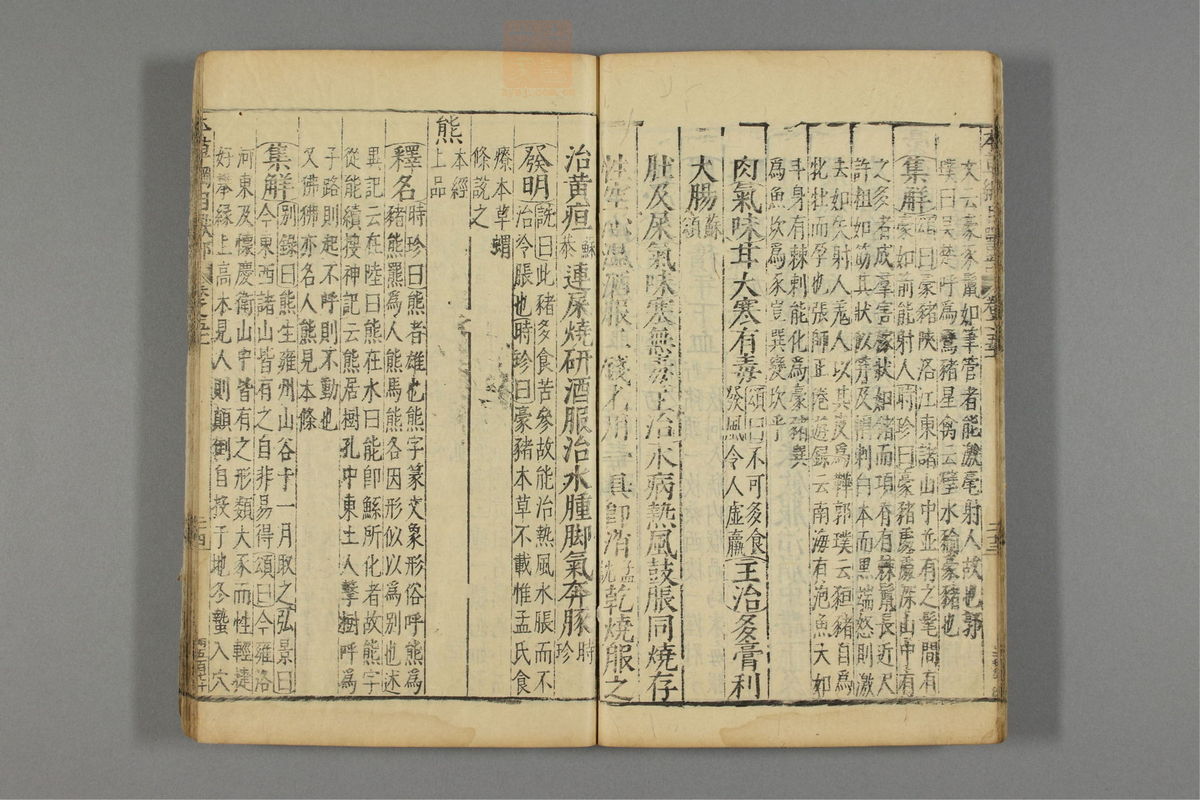 文云豪豕鬣如筆管者能激毫射人故也郭
璞曰吳楚呼為鸞豬星禽云壁水貐豪豬也
集解頌曰豪豬陝洛江東諸山中並有之髦間有
豪如箭能射人時珍曰豪豬處處深山中有
之多者成羣害稼狀如豬而項脊有棘鬣長近尺
許粗如筯其狀似笄及帽刺白本而黑端怒則激
去如矢射人羌人以其皮為鞾郭璞云豲豬自為
牝牡而孕也張師正倦遊錄云南海有泡魚大如
斗身有棘刺能化為豪豬巽
為魚坎為豕豈巽變坎乎
肉氣味甘大寒有毒頌曰不可多食
發風令人虛羸主治多膏利
大腸蘇
頌
肚及屎氣味寒無毒主治水病熱風鼓脹同燒存
性空心溫酒服二錢匕用一具即消孟
詵乾燒服之
治黃疸蘇
恭連屎燒研酒服治水腫脚氣奔豚時
珍
發明詵曰此豬多食苦參故能治熱風水脹而不
治冷脹也時珍曰豪豬本草不載惟孟氏食
療本草蝟
條說之
熊本經
上品
釋名時珍曰熊者雄也熊字篆文象形俗呼熊為
豬熊羆為人熊馬熊各因形似以為別也述
異記云在陸曰熊在水曰能即鯀所化者故熊字
從能續搜神記云熊居樹孔中東土人擊樹呼為
子路則起不呼則不動也
又狒狒亦名人熊見本條
集解別錄曰熊生雍州山谷十一月取之弘景曰
今東西諸山皆有之自非易得頌曰今雍洛
河東及懷慶衛山中皆有之形類大豕而性輕捷
好攀緣上高木見人則顛倒自投于地冬蟄入穴